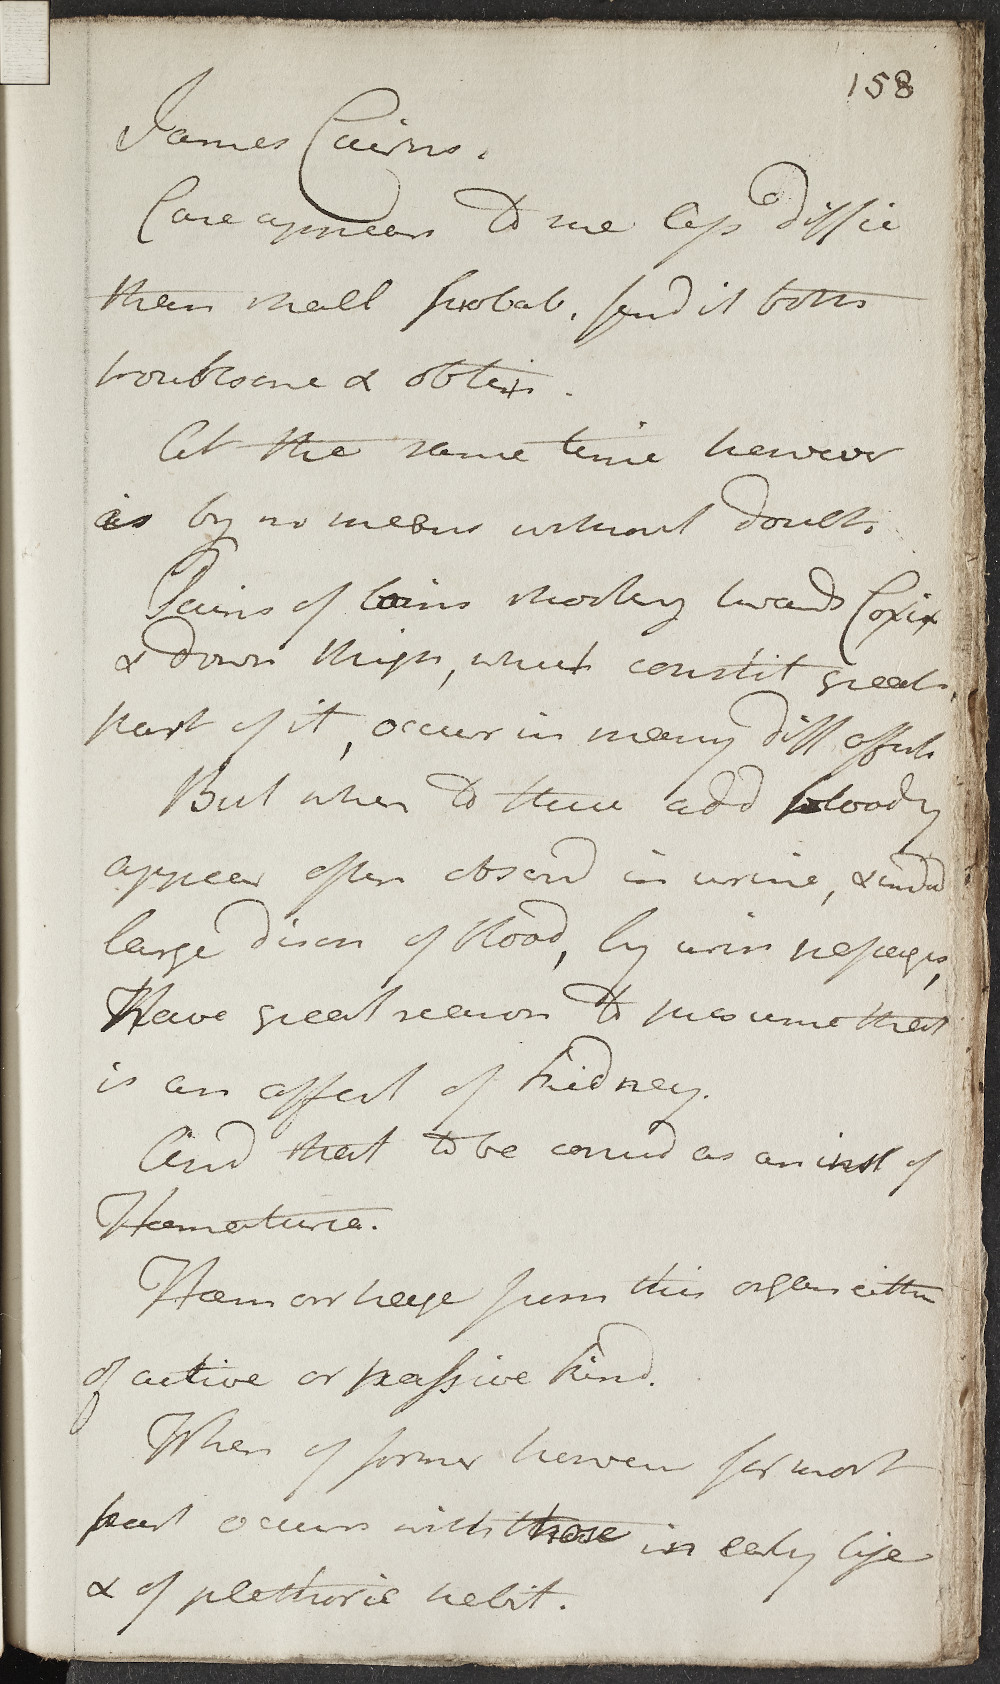 158
James Cairns.
Case appears to me less diffic
than shall probab. find it both
troublesome & obstin.
At the same time however
is by no means without doubt.
Pains of loins shooting towards Coxix
& down thigh, which constit great.
part of it, occur in many diff affect
But when to these add bloody
appear often observd in urine, & indd
large discn of blood, by urin passages,
Have great reason to presume that
is an affect of kidney.
And that to be consid as an inst of
Hematuria.
Hæmorrhage from this organ either
of active or passive kind.
When of former however for most
part occurs with those in early life
& of plethoric habit.